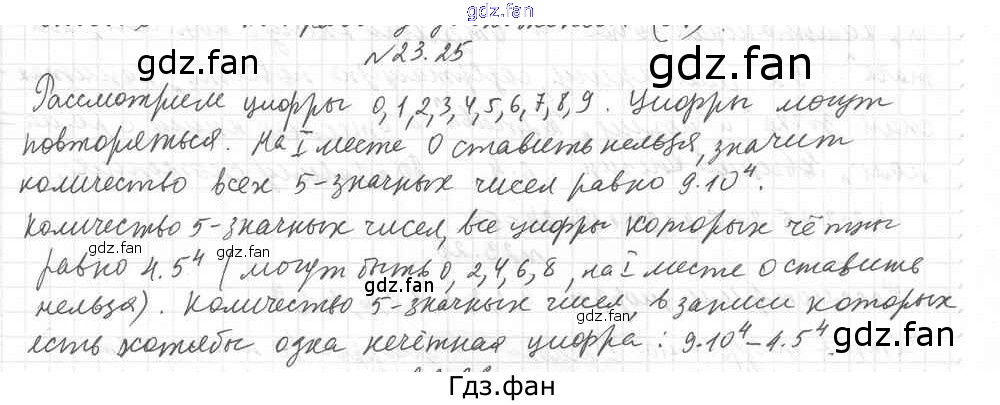 gdz.fan
№23.25
gdz.fan gdz.fan
Рассмотрим цифры 0,1,2,3,4,5,6,7,8,9. Цифры могут
повторяться. На I месте 0 ставить нельзя, значит
количество всех 5-значных чисел равно 9·10⁴.
Количество 5-значных чисел, все цифры которых чётны
gdz.fan gdz.fan
равно 4·5⁴ (могут быть 0, 2, 4, 6, 8, на I месте 0 ставить
нельзя). Количество 5-значных чисел, в записи которых
gdz.fan
есть хотябы одна нечётная цифра: 9·10⁴-4·5⁴.
gdz.fan
Гдз.фан